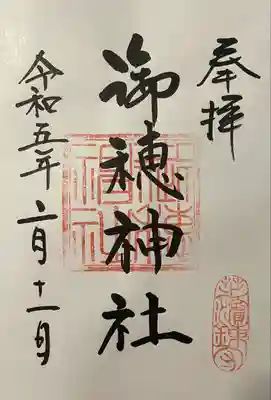 奉拝
御穂神社
令和五年二月十一日